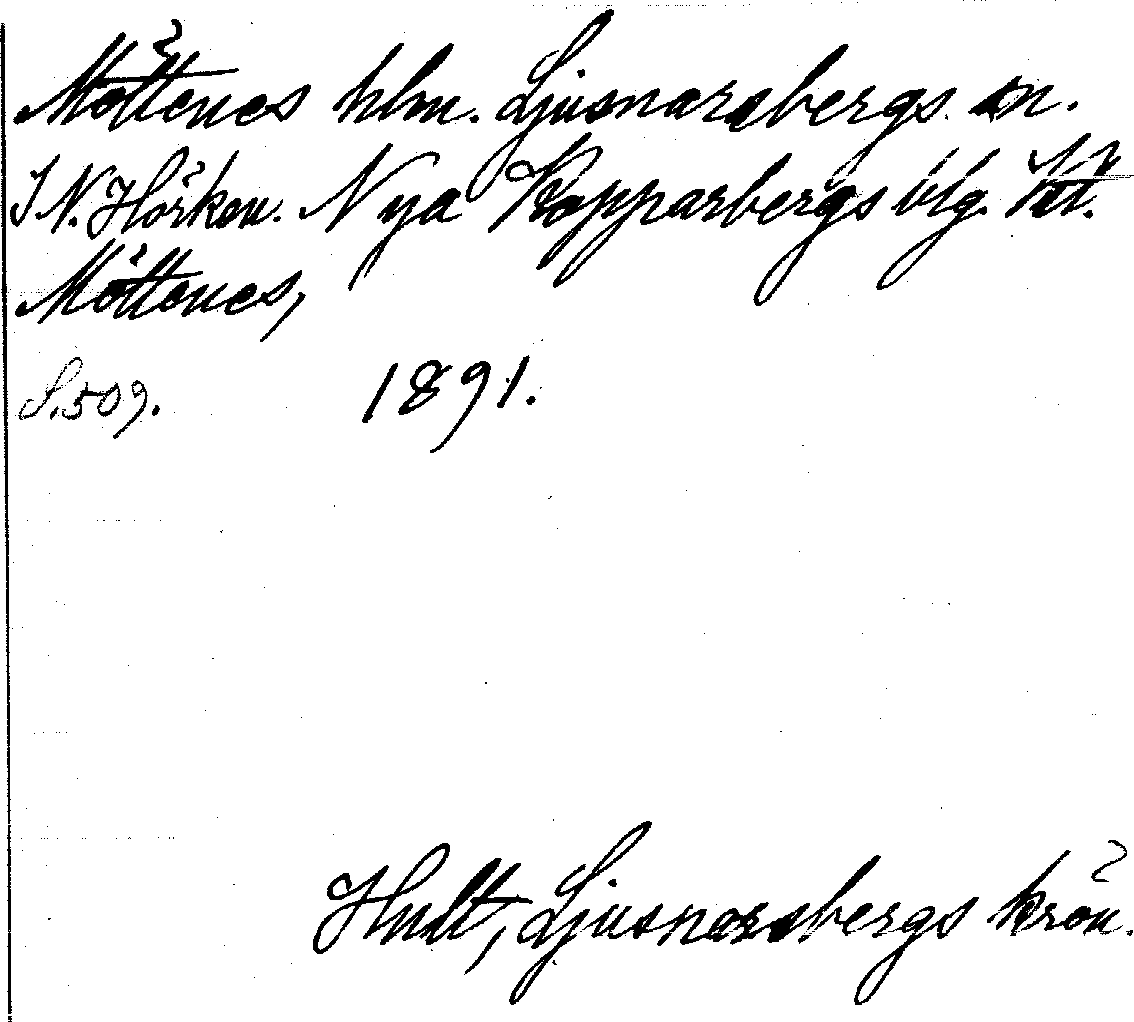 Möttenes hlm. Ljusnarsbergs sn.
I N. Hörken. Nya Kopparbergs blg.
Möttenes,
S. 509. 1891.
Hult, Ljusnarsbergs krön.